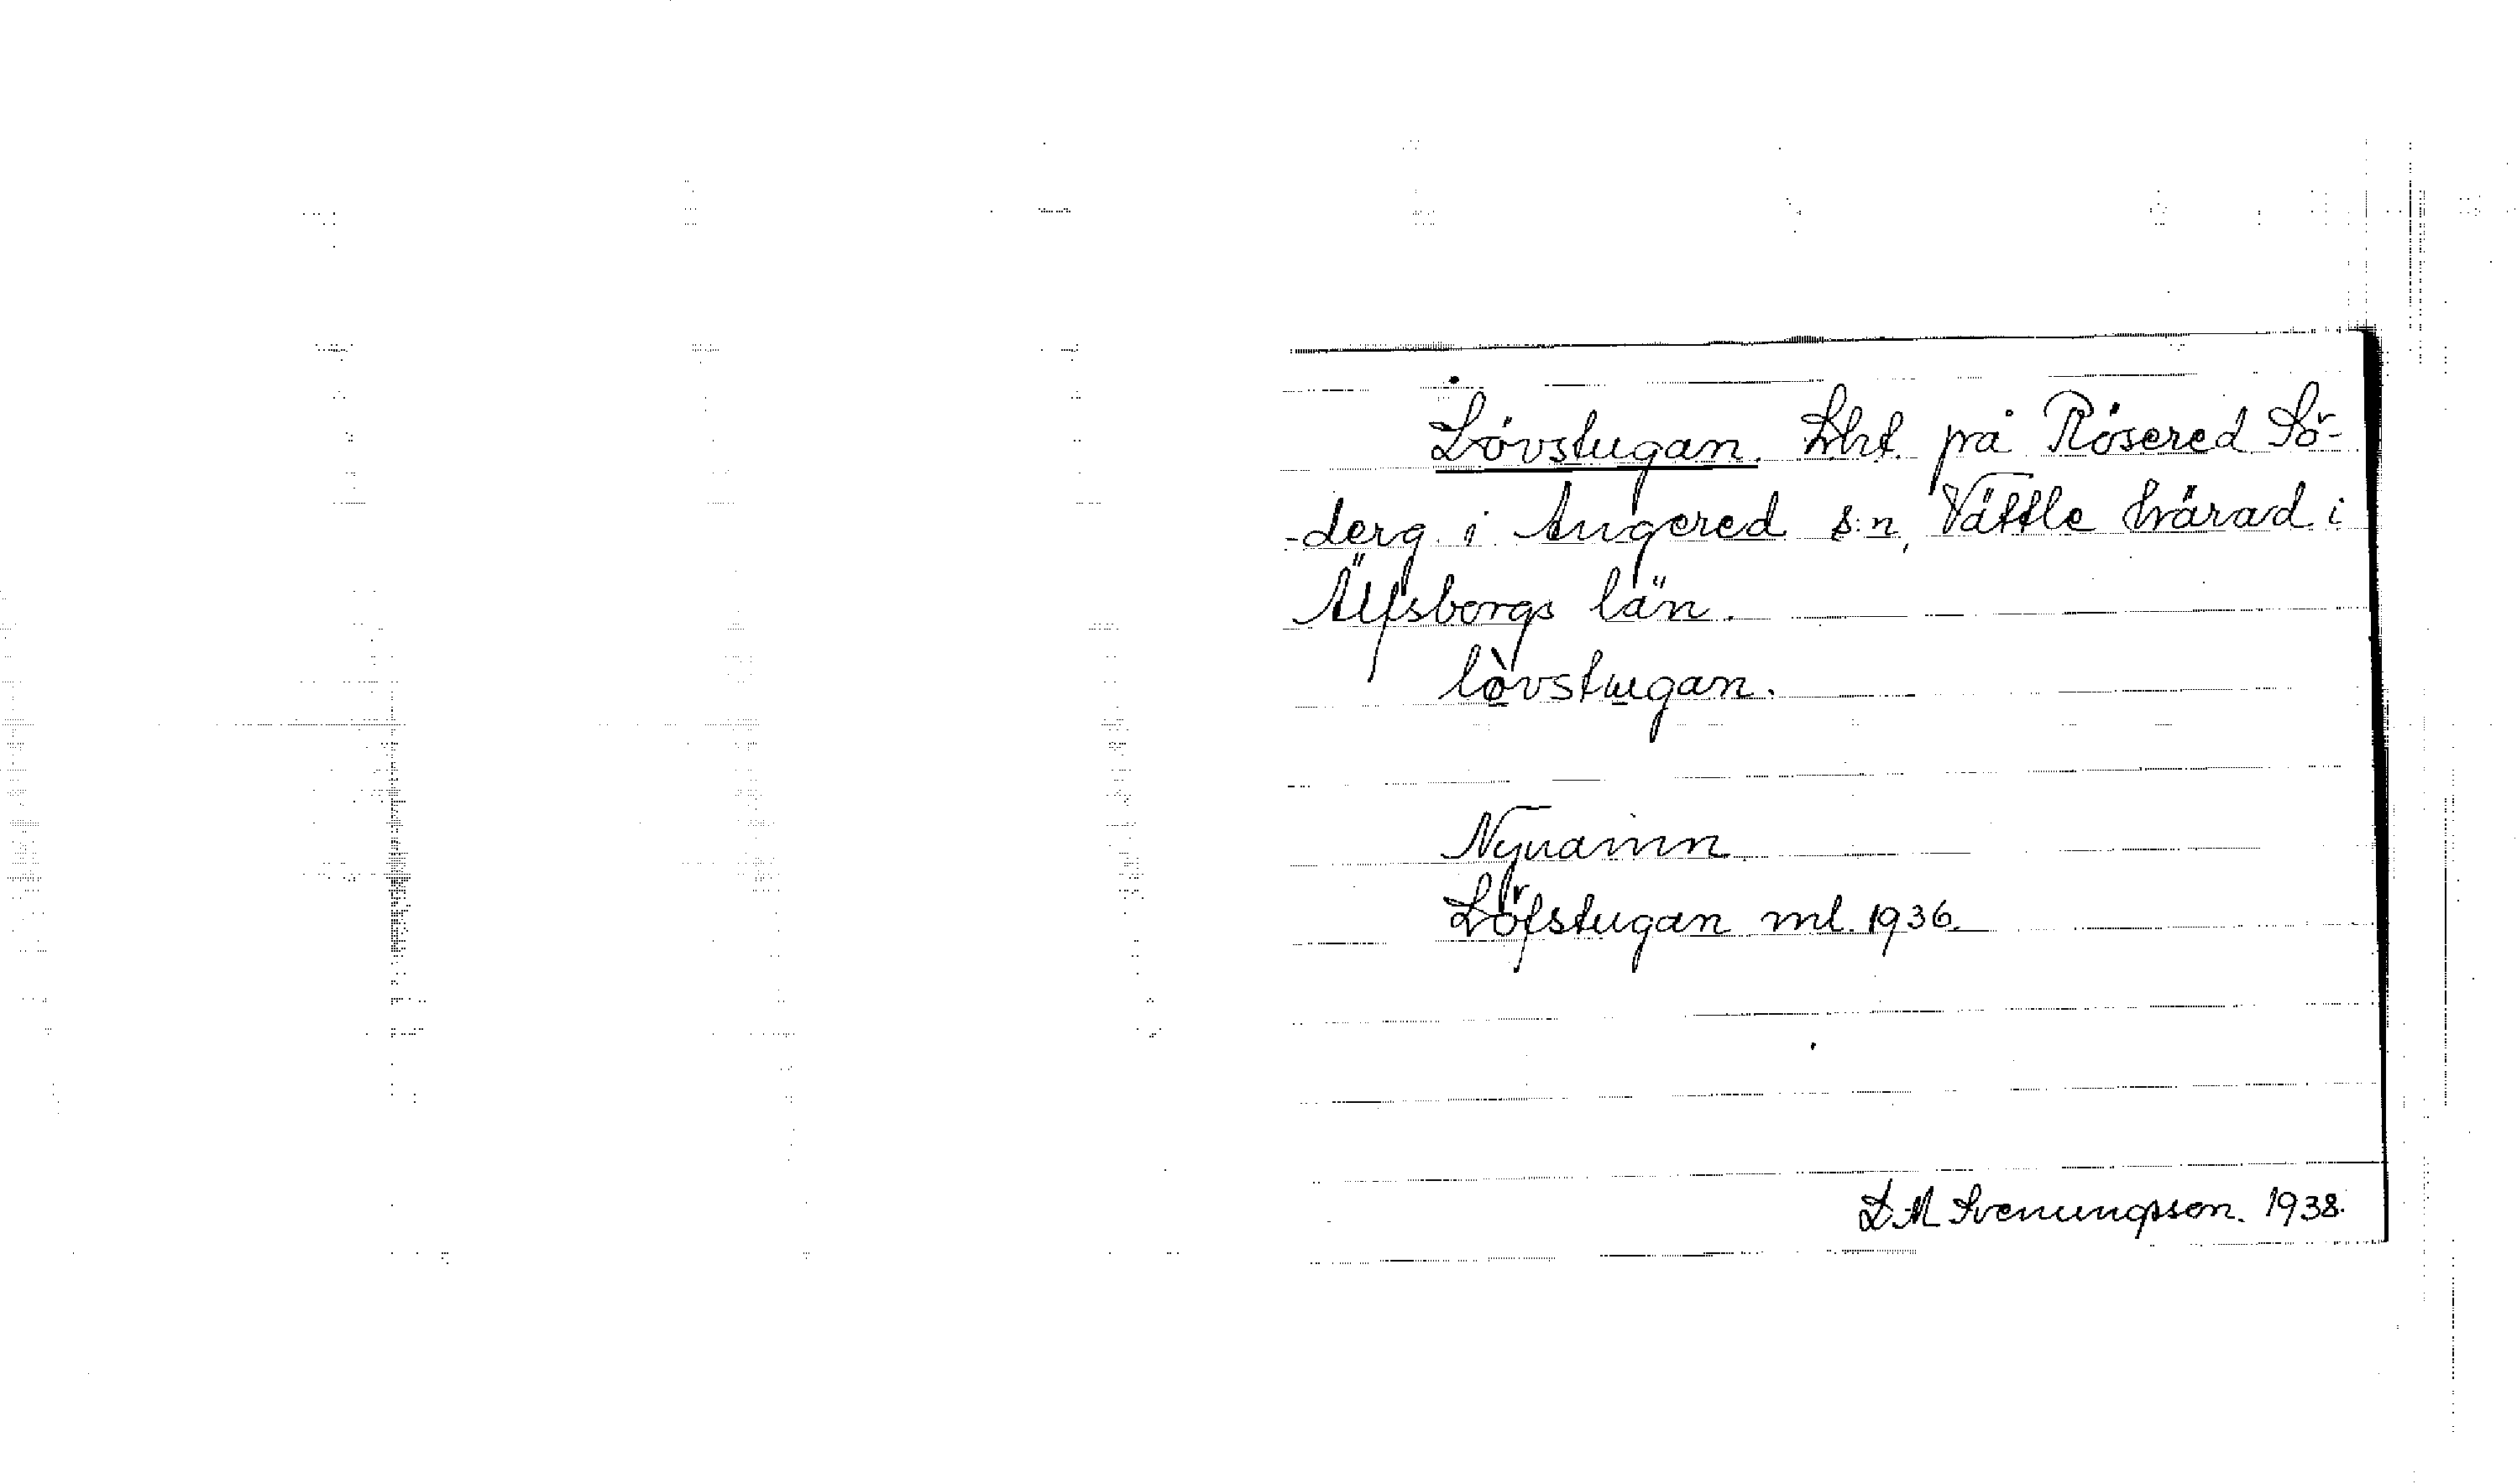 Lövstugan. Lht. på Rösered Sö-
-derg. i Angered s:n, Vättle härad i
Älfsborgs län.
lòvstugan.
Nynamn
Löfstugan ml. 1936.
D.M Svenungsson. 1938.